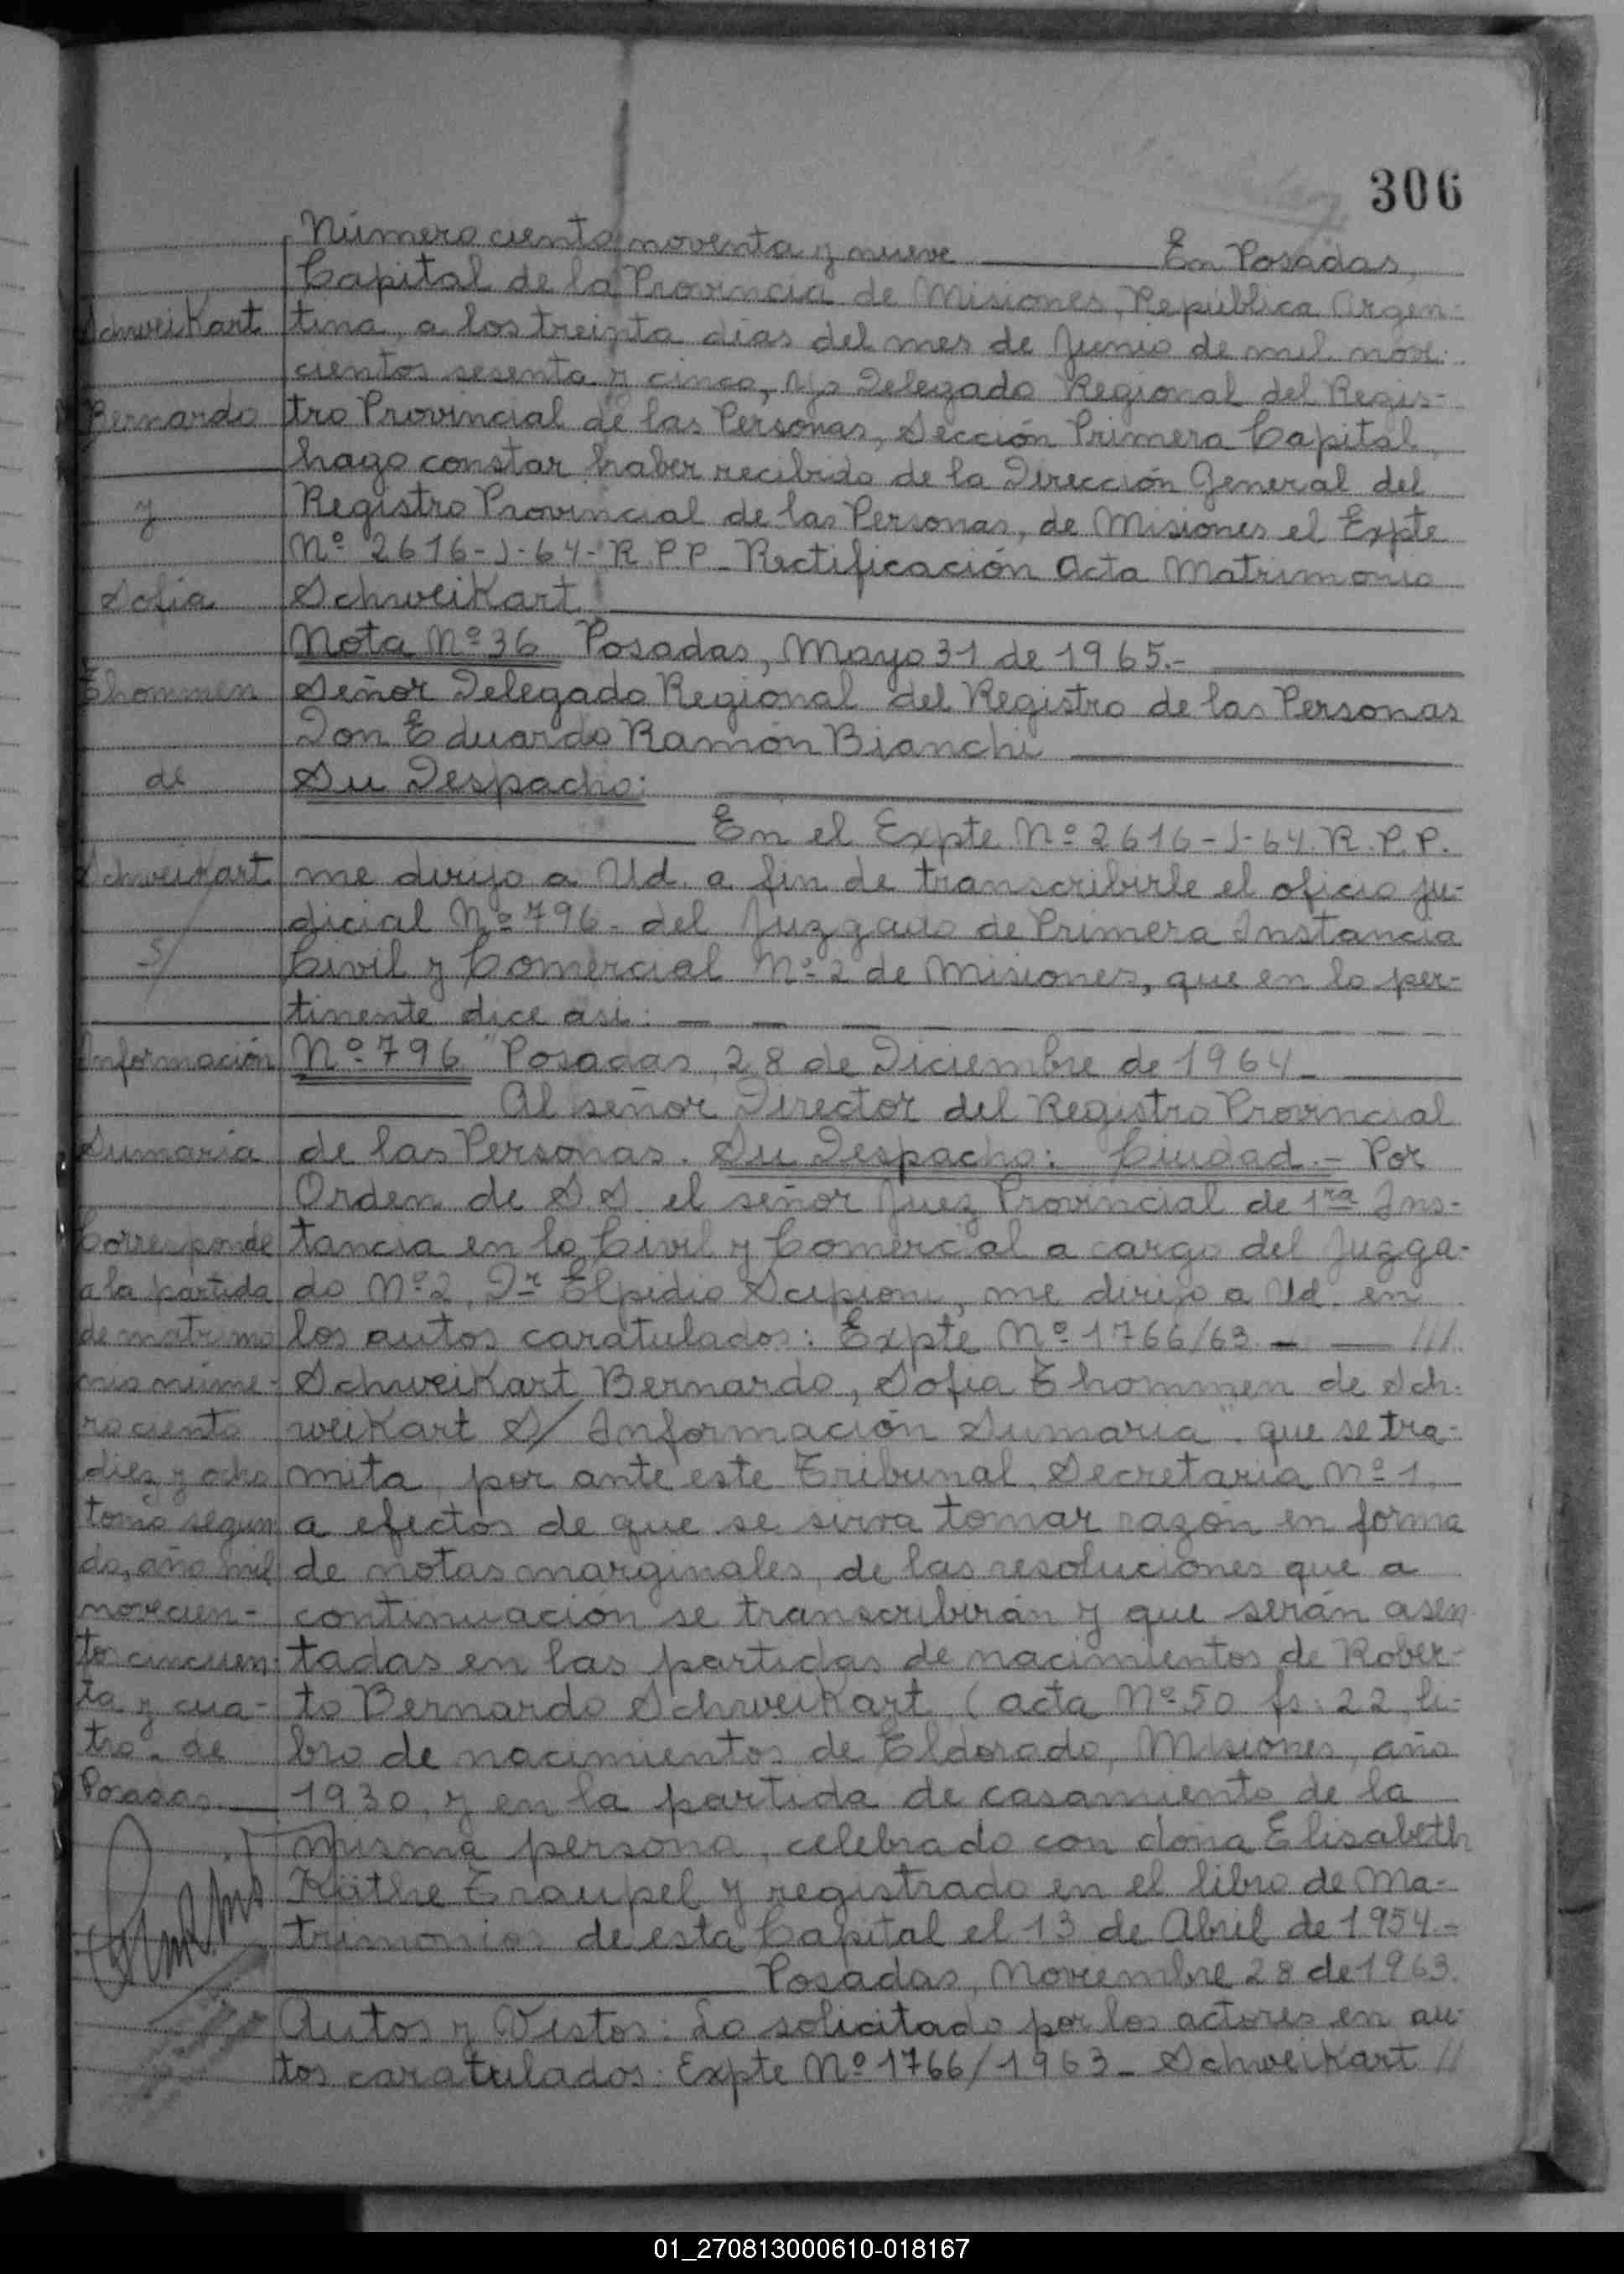 306
Número ciento noventa y nueve En Posadas,
Capital de la Provincia de Misiones, República Argen-
tina, a los treinta días del mes de Junio de mil nove-
cientos sesenta y cinco, Yo Delegado Regional del Regis-
tro Provincial de las Personas, Sección Primera Capital,
hago constar haber recibido de la Dirección General del
Registro Provincial de las Personas, de Misiones el Expte
Nº 2616-J-64-R.P.P_ Rectificación Acta Matrimonio
Schweikart
Nota Nº 36 Posadas, Mayo 31 de 1965.-
Señor Delegado Regional del Registro de las Personas
Don Eduardo Ramón Bianchi
Su Despacho:
En el Expte Nº 2616-J-64. R.P.P.
me dirijo a Ud. a fin de transcribirle el oficio ju-
dicial Nº 796- del Juzgado de Primera Instancia
Civil y Comercial Nº 2 de Misiones, que en lo per-
tinente dice así:
Nº 796 "Posadas, 28 de Diciembre de 1964_
Al señor Director del Registro Provincial
de las Personas. Su Despacho: Ciudad.- Por
Orden de S S. el señor Juez Provincial de 1ra Ins-
tancia en lo Civil y Comercial a cargo del Juzga-
do Nº 2, Dr Elpidio Scipioni, me dirijo a Ud. en
los autos caratulados: Expte Nº 1766/63.- ///.
Schweikart Bernardo, Sofia Thommen de Sch-
weikart S/ Información Sumaria". que se tra-
mita por ante este Tribunal, Secretaria Nº 1,
a efectos de que se sirva tomar razón en forma
de notas marginales, de las resoluciones que a
continuación se transcribirán y que serán asen
tadas en las partidas de nacimientos de Rober-
to Bernardo Schweikart (acta Nº 50 fs: 22, li-
bro de nacimientos de Eldorado, Misiones, año
1930, y en la partida de casamiento de la
misma persona, celebrado con doña Elisabeth
Käthe Traupel y registrado en el libro de Ma-
trimonios de esta Capital el 13 de Abril de 1954.-
Posadas, Noviembre 28 de 1963.
Autos y Vistos: Lo solicitado por los actores en au-
tos caratulados: Expte Nº 1766/1963_ Schweikart //
Schweikart
Bernardo
y
Sofia
Thommen
de
Schweikart
S/
Información
Sumaria
Corresponde
a la partida
de matrimo
nio núme-
ro ciento
diez y ocho
tomo segun
do, año mil
novecien-
tos cincuen-
ta y cua-
tro_ de
Posadas.
01_270813000610-018167